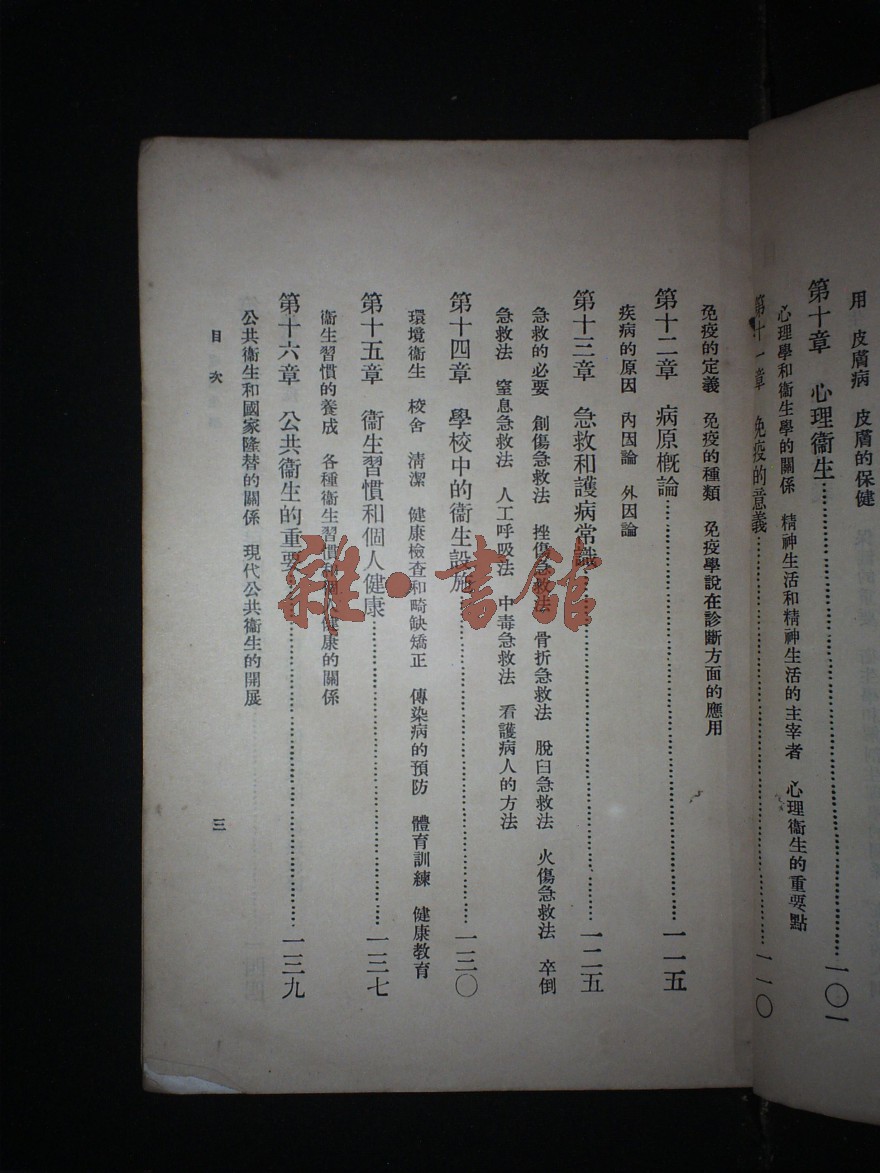 用　皮膚病　皮膚的保健
第十章　心理衞生……一〇一
心理學和衞生學的關係　精神生活和精神生活的主宰者　心理衞生的重要點
第十一章　免疫的意義……一一〇
免疫的定義　免疫的種類　免疫學說在診斷方面的應用
第十二章　病原概論……一一五
疾病的原因　內因論　外因論
第十三章　急救和護病常識……一二五
急救的必要　創傷急救法　挫傷急救法　骨折急救法　脫臼急救法　火傷急救法　卒倒
急救法　窒息急救法　人工呼吸法　中毒急救法　看護病人的方法
第十四章　學校中的衞生設施……一三〇
環境衞生　校舍　淸潔　健康檢查和畸缺矯正　傳染病的預防　體育訓練　健康教育
第十五章　衞生習慣和個人健康……一三七
衞生習慣的養成　各種衞生習慣和個人健康的關係
第十六章　公共衞生的重要……一三九
公共衞生和國家隆替的關係　現代公共衞生的開展
目次
三
雜·書館